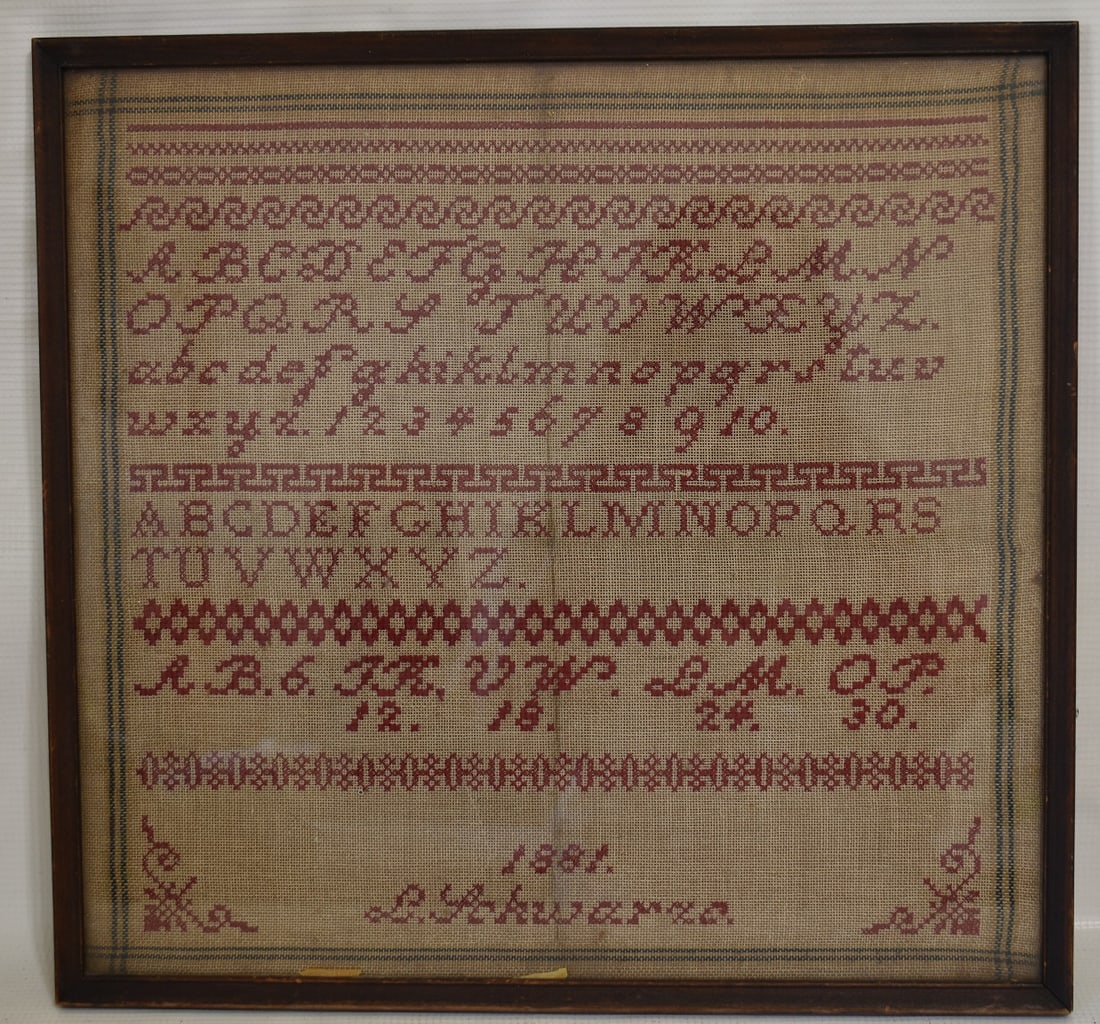 A B C D E F G H I K L M N
O P Q R S T U V W X Y Z.
a b c d e f g h i k l m n o p q r s t u v
w x y z. 1 2 3 4 5 6 7 8 9 10.
A B C D E F G H I K L M N O P Q R S
T U V W X Y Z.
A B. 6. I K. V W. L M. O P.
12. 18. 24. 30.
1881.
L. Schwarze.